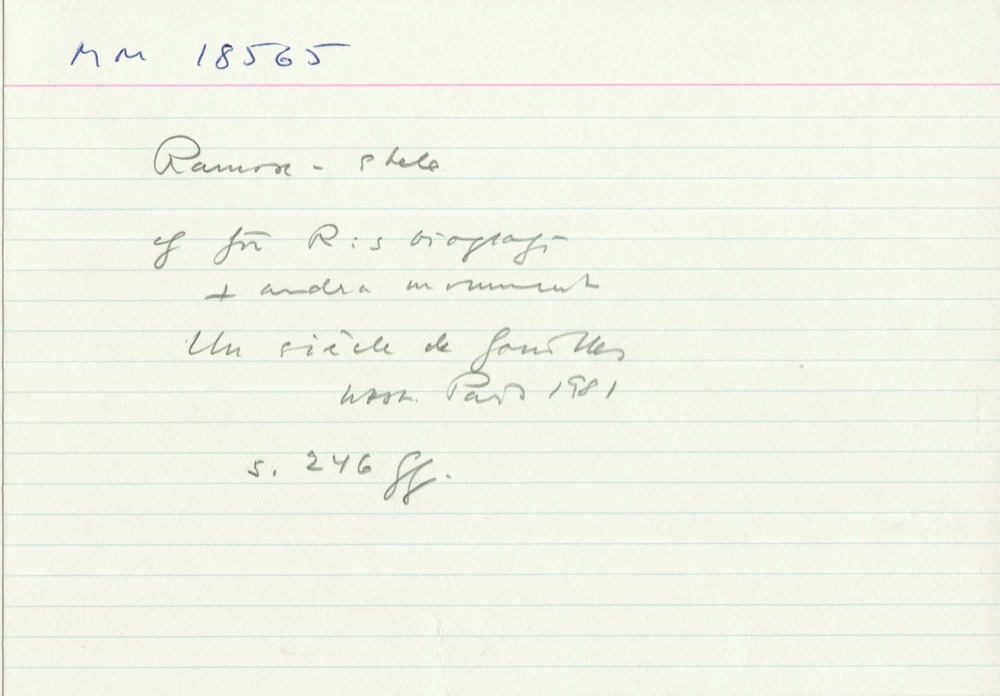 MM 18565
Ramose - stele
cf för R:s biografi
+ andra monument
Un siècle de fouilles
Paris 1981
s. 246 ff.